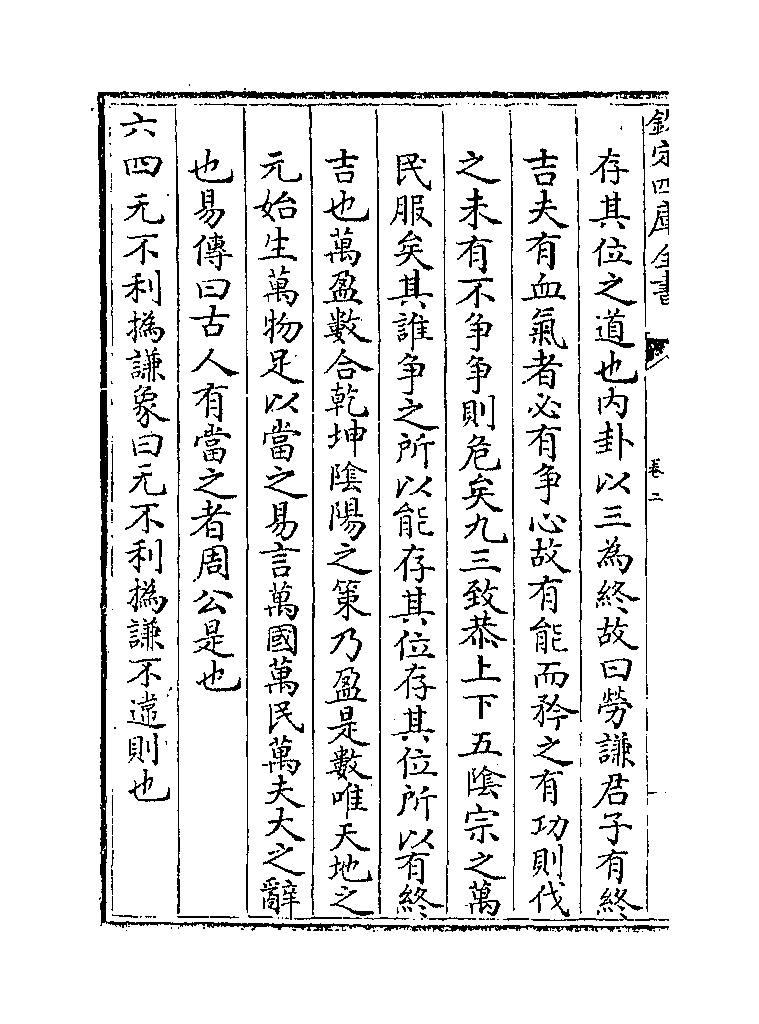 欽定四庫全書
卷二
存其位之道也内卦以三為終故曰勞謙君子有終
吉夫有血氣者必有争心故有能而矜之有功則伐
之未有不争争則危矣九三致恭上下五陰宗之萬
民服矣其誰争之所以能存其位存其位所以有終
吉也萬盈數合乾坤陰陽之策乃盈是數唯天地之
元始生萬物足以當之易言萬國萬民萬夫大之辭
也易傳曰古人有當之者周公是也
六四无不利撝謙象曰无不利撝謙不違則也